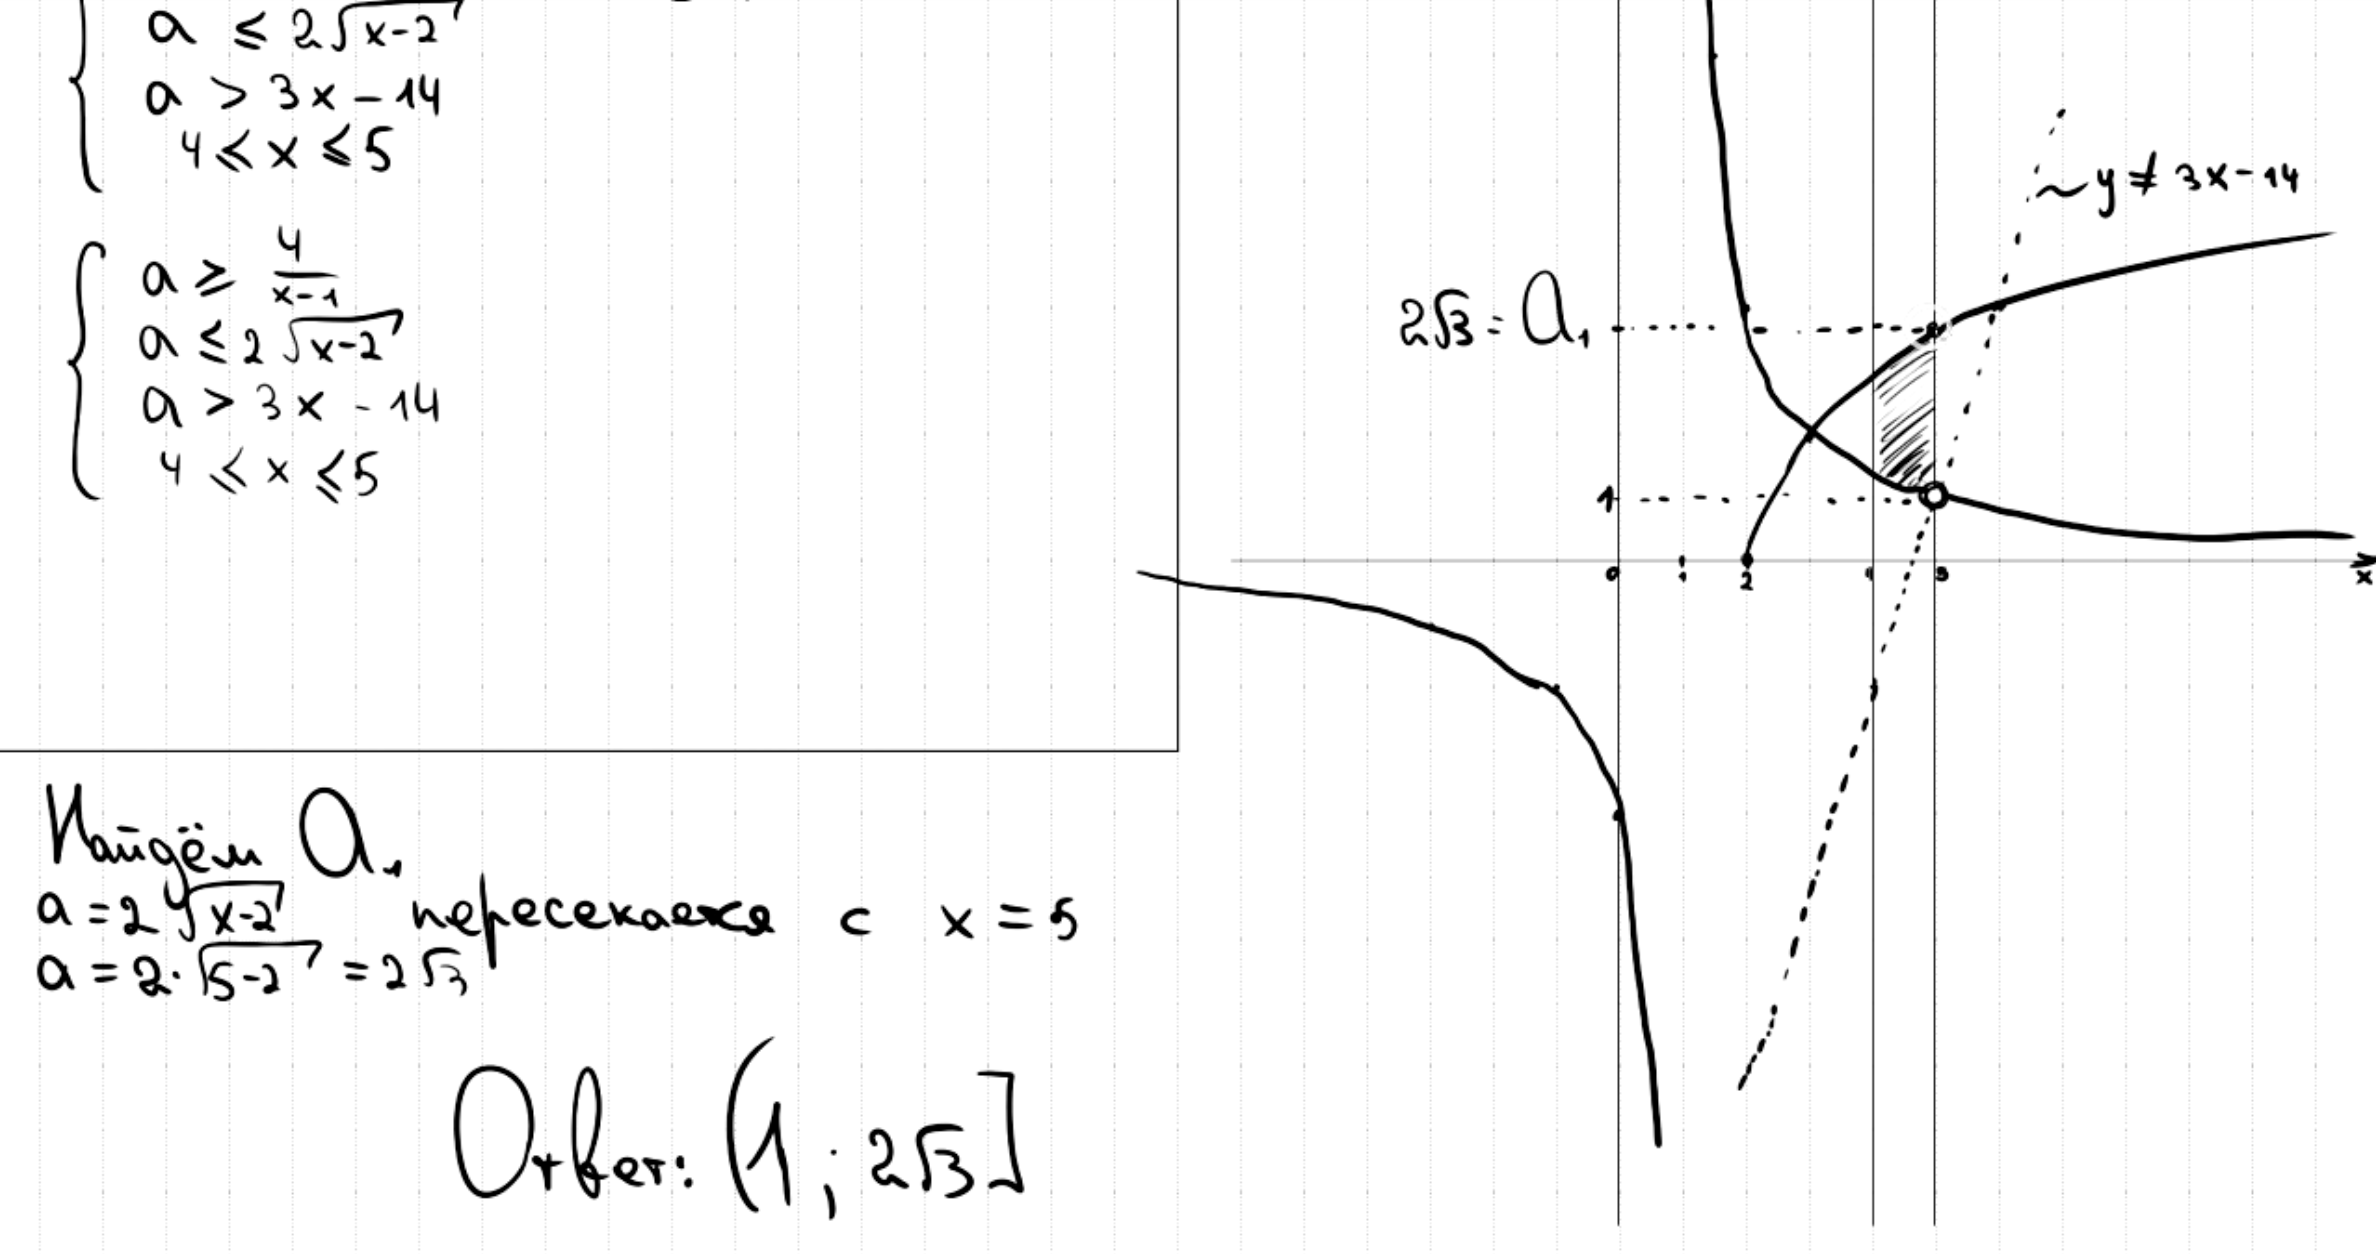 a ≤ 2√(x-2)
a > 3x - 14
4 ≤ x ≤ 5
a ≥ 4/(x-1)
a ≤ 2√(x-2)
a > 3x - 14
4 ≤ x ≤ 5
Найдём a₁
a = 2√(x-2) пересекается с x = 5
a = 2·√(5-2) = 2√3
Ответ: (1; 2√3]
y ≠ 3x - 14
2√3 = a₁
1
0 1 2 4 5 x